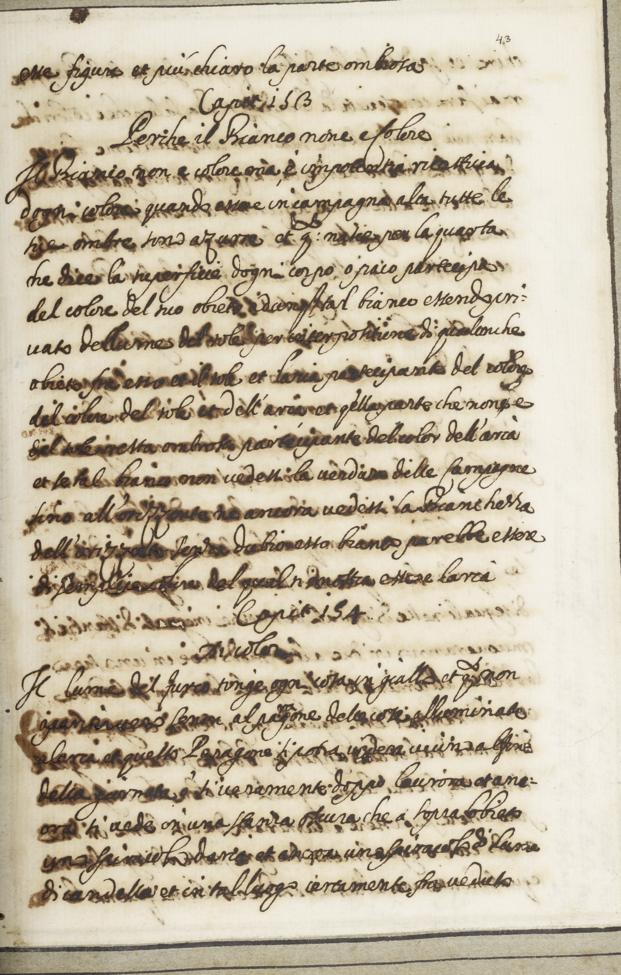 43
esse figure et più chiaro la parte ombrosa
Capit. 153
Perche il Bianco none e Colore
Il Bianco non e colore ma è impotentia ricettiua
dogni colore quando essere in campagna alta tutte le
sue ombre sono azurre et q: nasce per la quarta
che dice la superficie dogni corpo opaco partecipa
del colore del suo obietto il bianco essendo pri:
uato dellume del sole per interpositione di qualonche
obietto fra esso et il sole et laria partecipante del colore
del colore del sole et dell'aria et q̃lla parte che none
del sole resta ombrosa participante del color dell'aria
et se tal bianco non vedessi la verdura delle Campagne
sino all'orizzonte ne ancora vedessi la Bianchezza
dell'orizzonte senza dubio esso bianco parebbe essere
di semplice colore del qual si mostra essere laria
Capit 154
Di colori
Il lume del fuoco tinge ogni cosa in giallo et q̃ non
aparir uero senon al paragone delle cose alluminate
a laria et questo Paragone si potra vedere uicino al fine
della giornata o ueramente doppo laurora et anc-
ora si vede in una stanza oscura che a sopra lobieto
uno spiracolo daria et ancora uno spiracolo di lume
di candella et in tal luogo certamente fra vedute